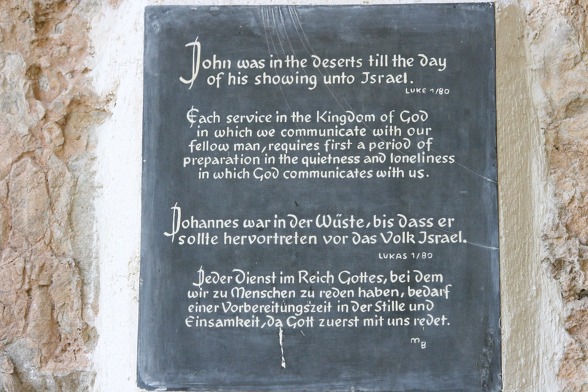 John was in the deserts till the day
of his showing unto Israel.
LUKE 1/80
Each service in the Kingdom of God
in which we communicate with our
fellow man, requires first a period of
preparation in the quietness and loneliness
in which God communicates with us.
Johannes war in der Wüste, bis dass er
sollte hervortreten vor das Volk Israel.
LUKAS 1/80
Jeder Dienst im Reich Gottes, bei dem
wir zu Menschen zu reden haben, bedarf
einer Vorbereitungszeit in der Stille und
Einsamkeit, da Gott zuerst mit uns redet.
MB